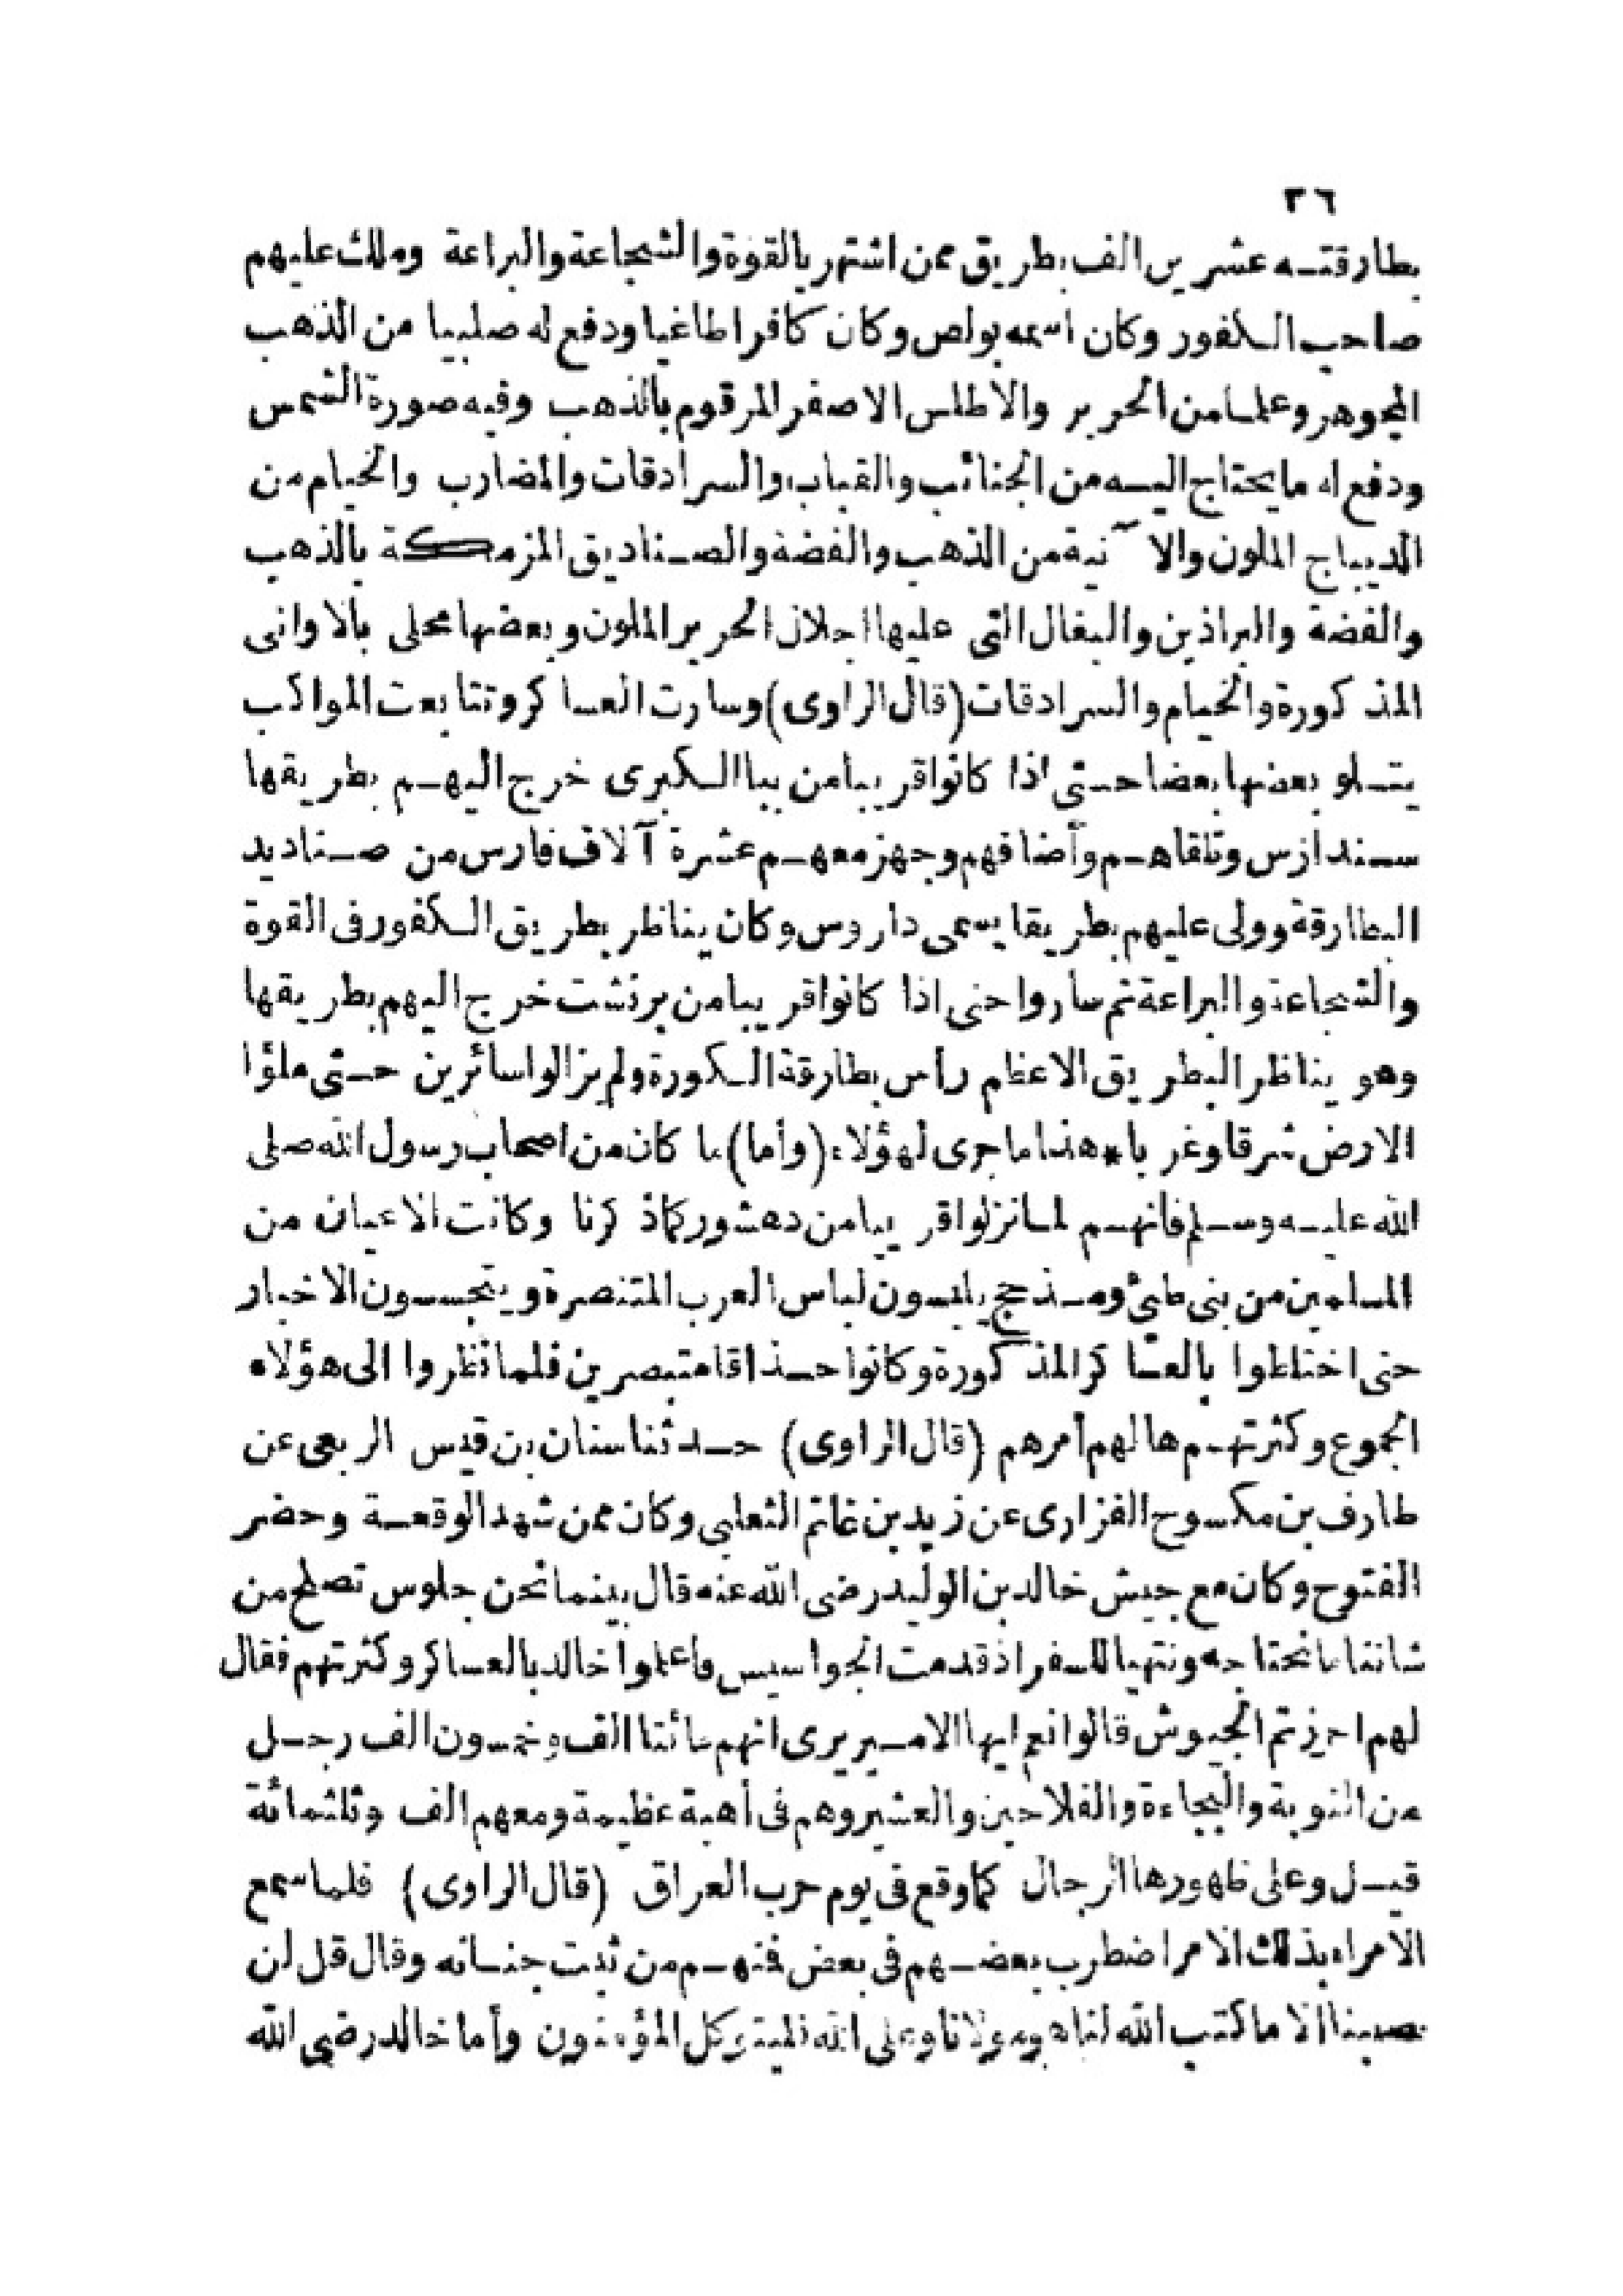 ٣٦
بطارقته عشرين الف بطريق ممن اشتهر بالقوة والشجاعة والبراعة وملك عليهم
صاحب الكفور وكان اسمه بولص وكان كافرا طاغيا ودفع له صليبا من الذهب
المجوهر وعلما من الحرير والاطلس الاصفر المرقوم بالذهب وفيه صورة الشمس
ودفع له ما يحتاج اليه من الجنائب والقباب والسرادقات والمضارب والخيام من
الديباج الملون والآنية من الذهب والفضة والصناديق المزمكة بالذهب
والفضة والبراذين والبغال التى عليها اجلال الحرير الملون وبعضها محلى بالاوانى
المذكورة والخيام والسرادقات (قال الراوى) وسارت العساكر وتتابعت المواكب
يتلو بعضها بعضا حتى اذا كانوا قريبا من ببا الكبرى خرج اليهم بطريقها
سندارس وتلقاهم وأضافهم وجهز معهم عشرة آلاف فارس من صناديد
البطارقة وولى عليهم بطريقا يسمى داروس وكان يناظر بطريق الكفور فى القوة
والشجاعة والبراعة ثم ساروا حتى اذا كانوا قريبا من برنشت خرج اليهم بطريقها
وهو يناظر البطريق الاعظم رأس بطارقة الكورة ولم يزالوا سائرين حتى ملؤا
الارض شرقا وغربا * هذا ما جرى لهؤلاء (وأما) ما كان من اصحاب رسول الله صلى
الله عليه وسلم فانهم لما نزلوا قريبا من دهشور كما ذكرنا وكانت الاعيان من
المسلمين من بنى طيئ ومذحج يلبسون لباس العرب المتنصرة ويتجسسون الاخبار
حتى اختلطوا بالعساكر المذكورة وكانوا حذاقا متبصرين فلما نظروا الى هؤلاء
الجموع وكثرتهم هالهم أمرهم (قال الراوى) حدثنا سنان بن قيس الربعى عن
طارف بن مكسوح الفزارى عن زيد بن غانم الثعلبى وكان ممن شهد الوقعة وحضر
الفتوح وكان مع جيش خالد بن الوليد رضى الله عنه قال بينما نحن جلوس نصلح من
شاننا ما نحتاجه ونتهيا للسفر اذ قدمت الجواسيس واعلموا خالد بالعساكر وكثرتهم فقال
لهم احزرتم الجيوش قالوا نعم ايها الامير يرى انهم مائتا الف وخمسون الف رجل
من النوبة والبجاءة والفلاحين والعشير وهم فى أهبة عظيمة ومعهم الف وثلثمائة
فيل وعلى ظهورها الرجال كما وقع فى يوم حرب العراق (قال الراوى) فلما سمع
الامراء بذلك الامر اضطرب بعضهم فى بعض فمنهم من ثبت جنانه وقال قل لن
يصيبنا الا ما كتب الله لنا هو مولانا وعلى الله فليتوكل المؤمنون وأما خالد رضى الله